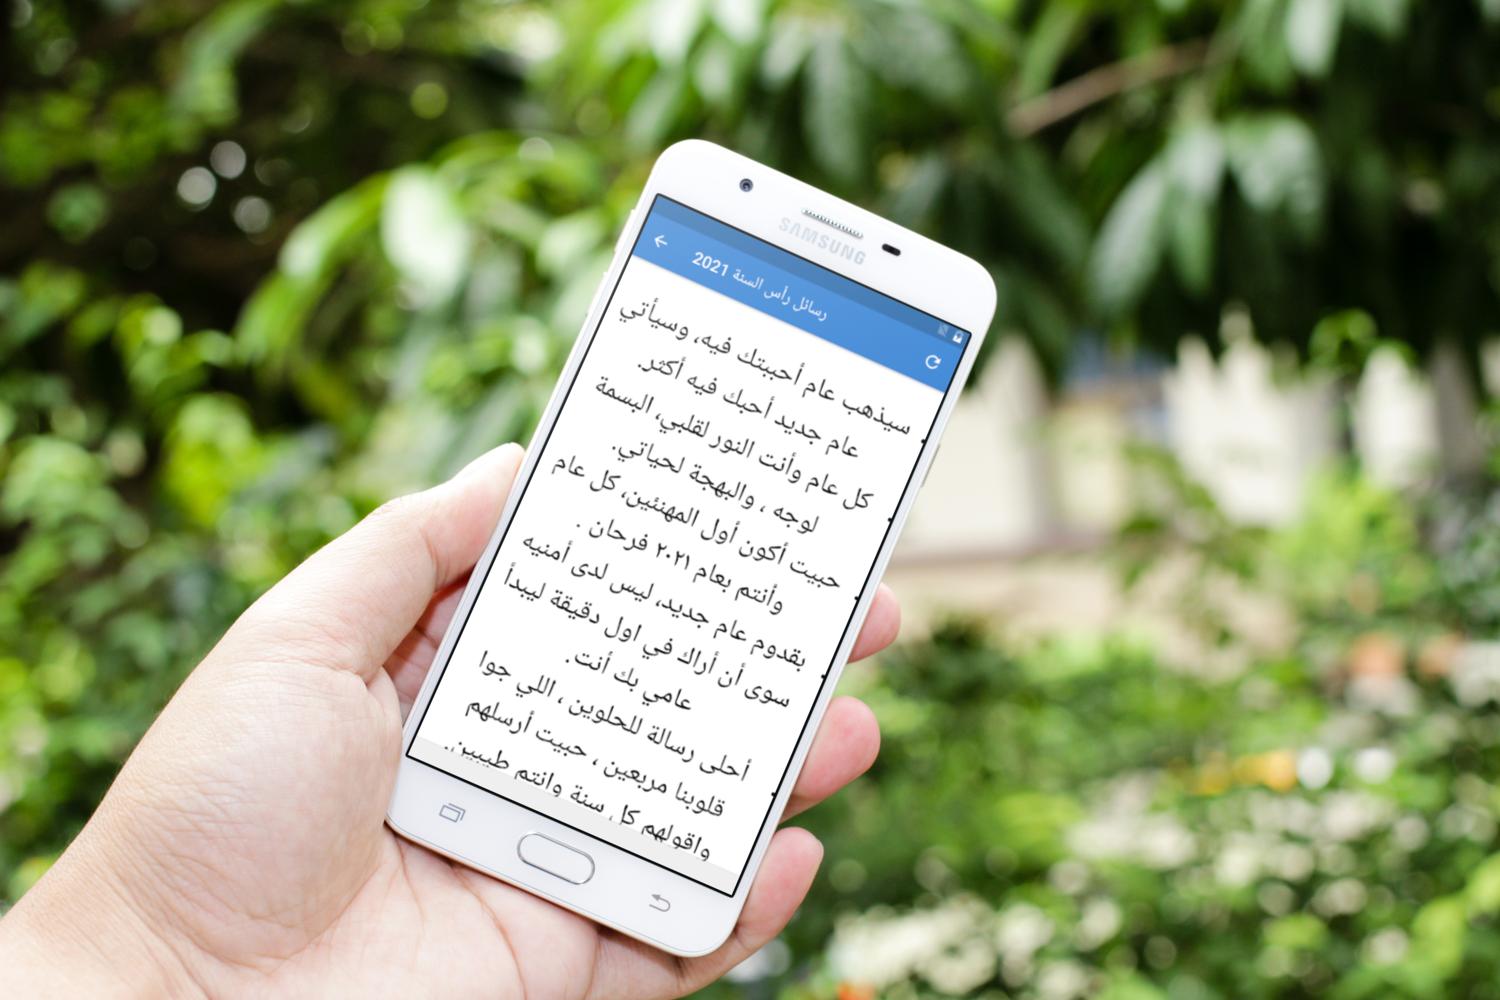 SAMSUNG
رسائل رأس السنة 2021
سيذهب عام أحببتك فيه، وسيأتي
عام جديد أحبك فيه أكثر.
كل عام وأنت النور لقلبي، البسمة
لوجه ، والبهجة لحياتي.
حبيت أكون أول المهنئين، كل عام
وأنتم بعام ٢٠٢١ فرحان .
بقدوم عام جديد، ليس لدى أمنيه
سوى أن أراك في اول دقيقة ليبدأ
عامي بك أنت.
أحلى رسالة للحلوين ، اللي جوا
قلوبنا مربعين ، حبيت أرسلهم
واقولهم كل سنة وانتم طيبين.